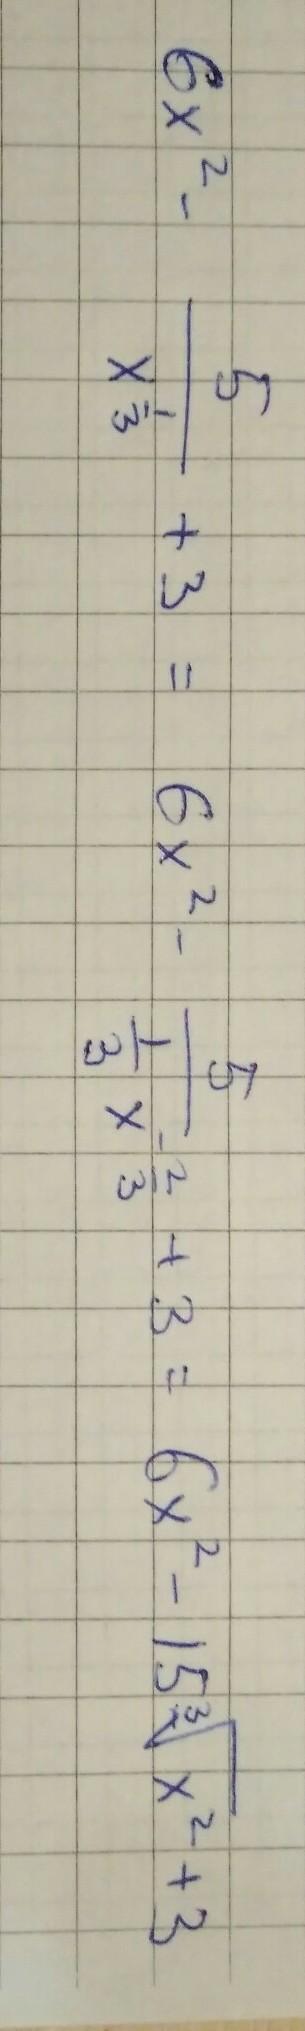 6x² - 5/x^(1/3) + 3 = 6x² - 5/(1/3 x^(-2/3)) + 3 = 6x² - 15∛(x²) + 3